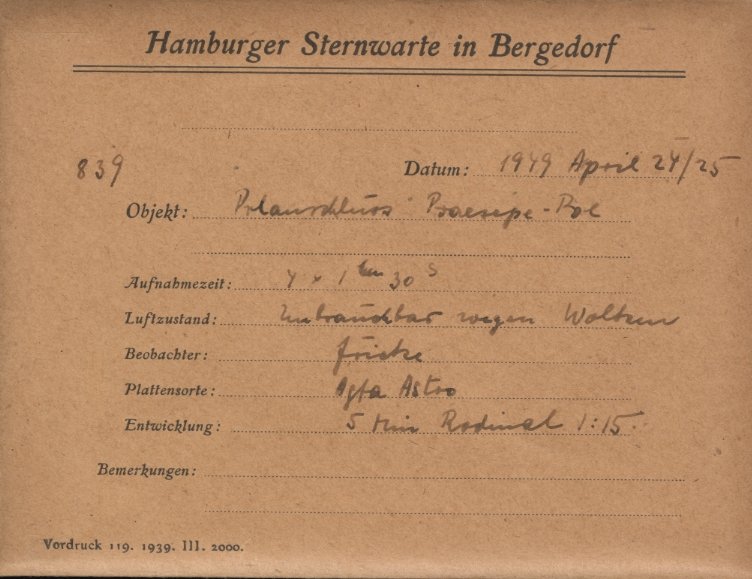 Hamburger Sternwarte in Bergedorf
839
Datum: 1949 April 24/25
Objekt: Polanschluss Praesepe-Pol
Aufnahmezeit: 4 x 1 m 30 s
Luftzustand: Unbrauchbar wegen Wolken
Beobachter: Fricke
Plattensorte: Agfa Astro
Entwicklung: 5 Min Rodinal 1:15
Bemerkungen:
Vordruck 119. 1939. III. 2000.